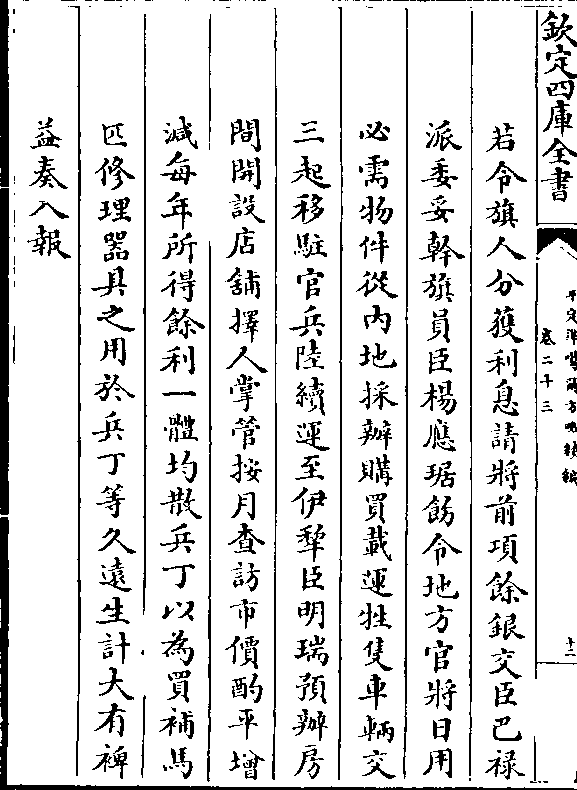 欽定四庫全書
平定準噶爾方略續編
卷二十三
十二
若令旗人分獲利息請將前項餘銀交臣巴祿
派委妥幹旗員臣楊應琚飭令地方官將日用
必需物件從內地採辦購買載運牲隻車輛交
三起移駐官兵陸續運至伊犂臣明瑞預辦房
間開設店舖擇人掌管按月查訪市價酌平增
減每年所得餘利一體均散兵丁以為買補馬
匹修理器具之用於兵丁等久遠生計大有裨
益奏入報